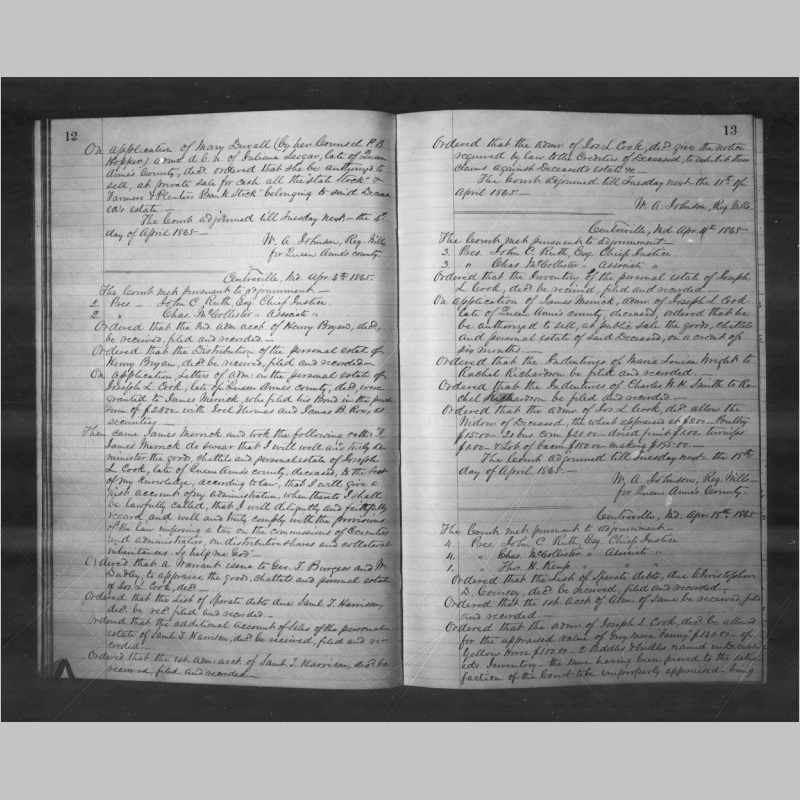 12
On application of Mary Duvall (by her Counsel P. B.
Hopper) admx d. b. n. of Juliana Seegar, late of Queen
Ann's County, decd. ordered that she be authorized to
sell, at private sale for cash all the "State Stock" or
Farmers & Planters Bank Stock" belonging to said Deceas
ed's estate —
The Court adjourned till Tuesday next — the 4th
day of April 1865 —
W. A. Johnson, Reg. Wills
for Queen Ann's county
Centreville, Md. Apr. 4th 1865.
The Court met pursuant to adjournment —
2. Pres — John C. Ruth Esq. Chief Justice.
2. " Chas. McCollister " Associate "
Ordered that the 3rd adm. acct. of Henry Bryan, decd,
be received, filed and recorded —
Ordered that the Distribution of the personal estate of
Henry Bryan, decd. be received, filed and recorded —
On application letters of adm. on the personal estate of
Joseph L. Cook, late of Queen Ann's county, decd, were
granted to James Merrick, who filed his Bond in the penal
sum of with Joel Thomas and James B. Roe, as
securities —
Then came James Merrick and took the following oath: "I
James Merrick do swear that I will well and truly ad
minister the good, chattels and personal estate of Joseph
L. Cook, late of Queen Ann's county, deceased, to the best
of my knowledge, according to law, that I will give a
just account of my administration, when thereto I shall
be lawfully called, that I will diligently and faithfully
record, and well and truly comply with the provisions
of the law imposing a tax on the commissions of Executors
and administrators, on distributive shares and collateral
inheritances. So help me God" —
Ordered that a Warrant issue to Geo. T. Burgess and Wm
Dudley, to appraise the good, chattels and personal estate
of Jos. L. Cook, decd —
Ordered that the List of Sperate debts due Saml. T. Harrison,
decd. be recd. filed and recorded —
Ordered that the additional Account of Sales of the personal
estate of Saml. T. Harrison, decd. be received, filed and re-
corded —
Ordered that the 1st adm. acct. of Saml. T. Harrison, decd. be
received, filed and recorded —
13
Ordered that the admr. of Jos. L. Cook, decd. give the notice
required by law to the Creditors of Deceased, to exhibit their
claims against Deceased's estate &c —
The Court adjourned till Tuesday next the 11th of
April 1865 —
W. A. Johnson, Reg. Wills.
Centreville, Md. Apr. 11th 1865 —
The Court met pursuant to adjournment —
3. Pres. John C. Ruth, Esq. Chief Justice
3. " Chas. McCollister " Associate "
Ordered that the Inventory of the personal estate of Joseph
L. Cook, decd. be received, filed and recorded —
On application of James Merrick, admr. of Joseph L. Cook
late of Queen Ann's county, deceased, ordered that he
be authorized to sell, at public sale the goods, chattels
and personal estate of said Deceased, on a credit of
six months —
Ordered that the Indentures of Maria Louisa Wright to
Rachel Richardson be filed and recorded —
Ordered that the Indentures of Charles W. H. Smith to Ra
chel Richardson be filed and recorded —
Ordered that the admr. of Jos. L. Cook, decd. allow the
Widow of Deceased, the wheat appraised at Poultry
$15.00 — 20 bus. corn dried fruit turnips
& Lot of bacon making
The Court adjourned till Tuesday next the 18th
day of April 1865 —
W. A. Johnson, Reg. Wills —
for Queen Ann's County —
Centreville, Md. Apr. 18th 1865
The Court met pursuant to adjournment —
4. Pres. John C. Ruth Esq. Chief Justice
4. " Chas. McCollister " Associate "
1. " Thos. H. Kemp " " "
Ordered that the List of Sperate debts, due Christopher
D. decd. be received, filed and recorded —
Ordered that the 1st acct of Adm. of same be received, filed
and recorded —
Ordered that the admr. of Joseph L. Cook, decd. be allowed
for the appraised value of Grey mare of
yellow horse 2 Saddles & bridles named in Deceas
ed's Inventory — the same having been proved to the satis
faction of the Court to be improperly appraised — being